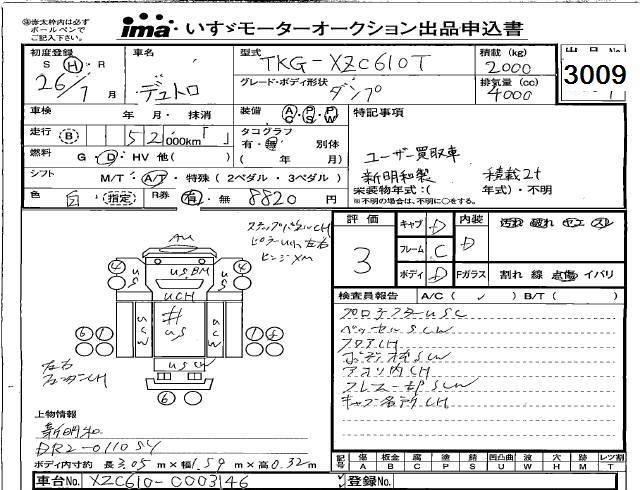 ※赤太枠内は必ず
ボールペンで
ご記入下さい。
ima いすゞモーターオークション出品申込書
初度登録
S・H・R
26/7 月
車名
デュトロ
型式
TKG-XZC610T
グレード・ボディ形状
ダンプ
積載 (kg)
2000
排気量 (cc)
4000
出品No.
3009
車検 年 月・抹消
走行 B 52,000km
燃料 G・D・HV 他( )
シフト M/T・A/T・特殊 (2ペダル・3ペダル)
色 白 (指定) R券 有・無 8820 円
装備 AC PS PW
タコグラフ
有・無 別体
( 年 月)
特記事項
ユーザー買取車
新明和製 積載2t
架装物年式:( 年式)・不明
※不明の場合は、不明に○をする。
ステップパネルCH
ピラーUH 左右
ヒンジXM
AU
US BM
US
US
UCH
UCW
UCW
井
US
US CH
4
4
6
1
1
6
6
左右
フェンダーCH
評価
3
キャブ D
フレーム C
ボディ D
内装
D
汚れ 破れ ヤニ スレ
Fガラス 割れ 線 点傷 イバリ
検査員報告 A/C ( ✓ ) B/T ( )
プロテクターUSC
ベッセルSCW
フロアCH
アオリ内CH
フレーム一部SCW
キャブ各所CH
上物情報
新明和
DR2-0110SY
ボディ内寸約 長3.05 m×幅1.59 m×高0.32 m
車台No. XZC610-0003146
登録No.
記号
傷 板金 腐 塗 錆 凹凸曲 波 穴 跡 レツ割
A B C P S U W H M T